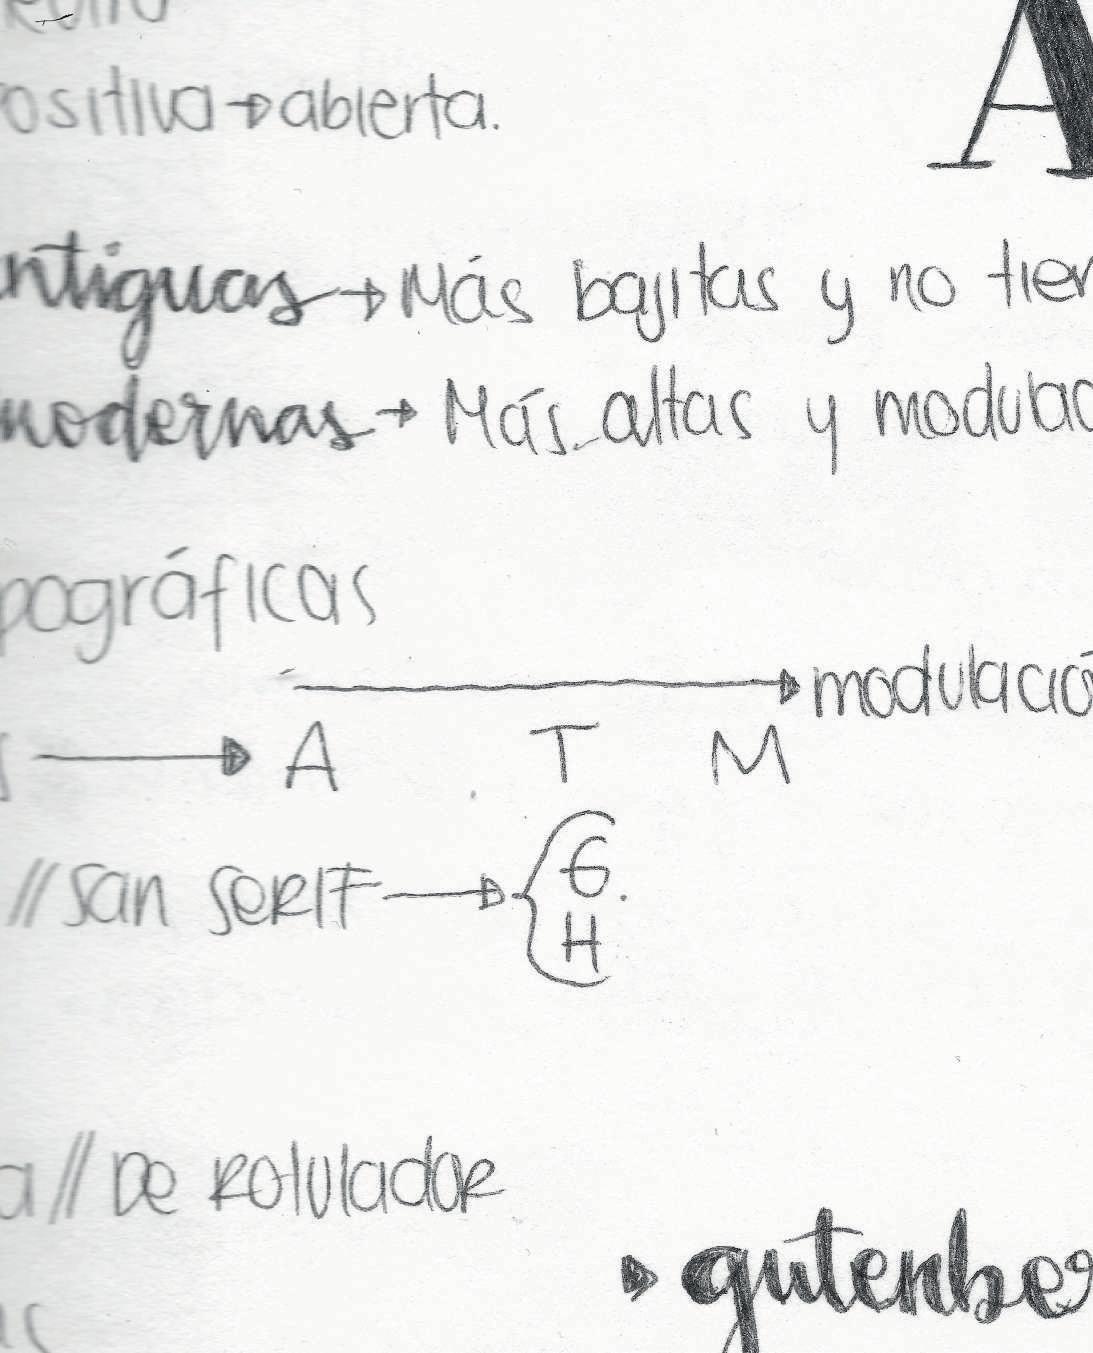 A
ositiva → abierta.
ntiguas → Más bajitas y no tien
modernas → Más altas y modulac
pográficas
→ modulació
→ A T M
// SAN SERIF → { G.
H
a // DE ROTULADOR
gutenber